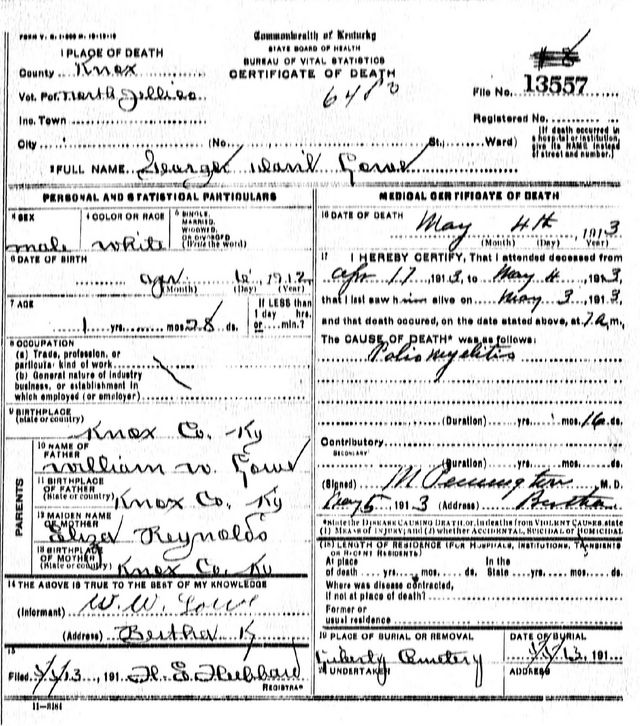 FORM V. S. 1-
Commonwealth of Kentucky
STATE BOARD OF HEALTH
BUREAU OF VITAL STATISTICS
CERTIFICATE OF DEATH
1 PLACE OF DEATH
County Knox
Vot. Pct. North Jellico
Inc. Town
City (No. St., Ward)
File No. 13557
Registered No.
(If death occurred in a hospital or institution, give its NAME instead of street and number.)
2 FULL NAME George
PERSONAL AND STATISTICAL PARTICULARS
3 SEX
male
4 COLOR OR RACE
white
5 SINGLE, MARRIED, WIDOWED, OR DIVORCED (Write the word)
6 DATE OF BIRTH
Apr 1912
(Month) (Day) (Year)
7 AGE
1 yrs. mos. 28 ds.
If LESS than 1 day hrs. or min.?
8 OCCUPATION
(a) Trade, profession, or particular kind of work
(b) General nature of industry business, or establishment in which employed (or employer)
9 BIRTHPLACE
(State or country)
Knox Co. Ky
PARENTS
10 NAME OF FATHER
William W.
11 BIRTHPLACE OF FATHER
(State or country) Knox Co. Ky
12 MAIDEN NAME OF MOTHER
Eliza Reynolds
13 BIRTHPLACE OF MOTHER
(State or country) Knox Co. Ky
14 THE ABOVE IS TRUE TO THE BEST OF MY KNOWLEDGE
(Informant) W. W.
(Address) Bertha Ky
15
Filed 13, 191 H. E. Hubbard
REGISTRAR
11-3184
MEDICAL CERTIFICATE OF DEATH
16 DATE OF DEATH
May 4th, 1913
(Month) (Day) (Year)
17 I HEREBY CERTIFY, That I attended deceased from
Apr 17, 1913, to May 4, 1913,
that I last saw him alive on May 3, 1913,
and that death occured, on the date stated above, at 7 a m.
The CAUSE OF DEATH* was as follows:
Polio myelitis
(Duration) yrs. mos. 16 ds.
Contributory
SECONDARY
(Duration) yrs. mos. ds.
(Signed) M Pennington M. D.
May 5, 1913 (Address) Bertha
*State the DISEASE CAUSING DEATH, or, in deaths from VIOLENT CAUSES, state (1) MEANS OF INJURY; and (2) whether ACCIDENTAL, SUICIDAL or HOMICIDAL
(18) LENGTH OF RESIDENCE (FOR HOSPITALS, INSTITUTIONS, TRANSIENTS OR RECENT RESIDENTS)
At place of death yrs. mos. ds. In the State yrs. mos. ds.
Where was disease contracted, if not at place of death?
Former or usual residence
19 PLACE OF BURIAL OR REMOVAL
Cemetery
DATE OF BURIAL
13, 191
20 UNDERTAKER
ADDRESS